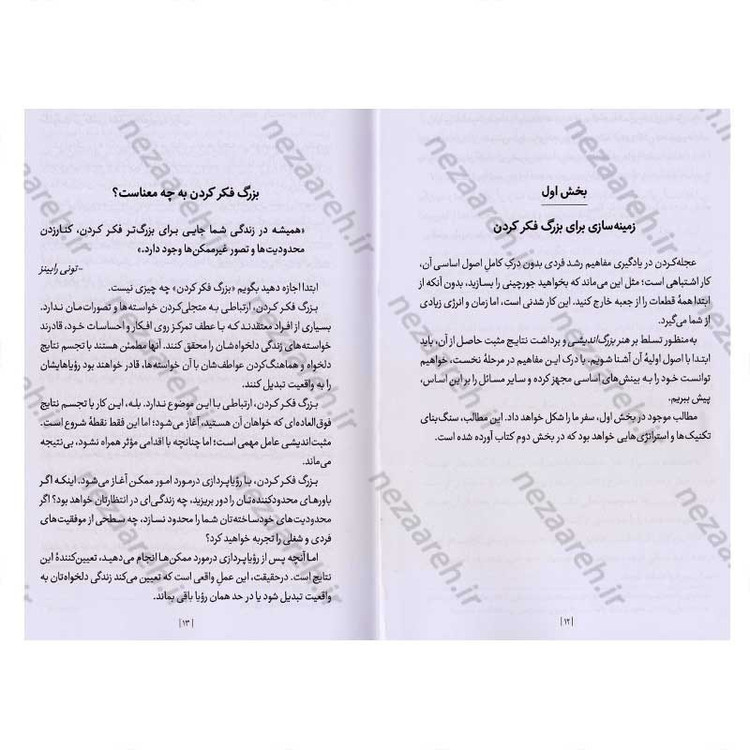 بخش اول
زمینه‌سازی برای بزرگ فکر کردن
عجله‌کردن در یادگیری مفاهیم رشد فردی بدون درک کامل اصول اساسی آن،
کار اشتباهی است؛ مثل این می‌ماند که بخواهید جورچینی را بسازید، بدون آنکه از
ابتدا همهٔ قطعات را از جعبه خارج کنید. این کار شدنی است، اما زمان و انرژی زیادی
از شما می‌گیرد.
به‌منظور تسلط بر هنر بزرگ‌اندیشی و برداشت نتایج مثبت حاصل از آن، باید
ابتدا با اصول اولیهٔ آن آشنا شویم. با درک این مفاهیم در مرحلهٔ نخست، خواهیم
توانست خود را به بینش‌های اساسی مجهز کرده و سایر مسائل را بر این اساس،
پیش ببریم.
مطالب موجود در بخش اول، سفر ما را شکل خواهد داد. این مطالب، سنگ‌بنای
تکنیک‌ها و استراتژی‌هایی خواهد بود که در بخش دوم کتاب آورده شده است.
|۱۲|
بزرگ فکر کردن به چه معناست؟
«همیشه در زندگی شما جایی برای بزرگ‌تر فکر کردن، کنارزدن
محدودیت‌ها و تصور غیرممکن‌ها وجود دارد.»
-تونی رابینز
ابتدا اجازه دهید بگویم «بزرگ فکر کردن» چه چیزی نیست.
بزرگ فکر کردن، ارتباطی به متجلی‌کردن خواسته‌ها و تصورات‌مان ندارد.
بسیاری از افراد معتقدند که با عطف تمرکز روی افکار و احساسات خود، قادرند
خواسته‌های زندگی دلخواه‌شان را محقق کنند. آنها مطمئن هستند با تجسم نتایج
دلخواه و هماهنگ‌کردن عواطف‌شان با آن خواسته‌ها، قادر خواهند بود رؤیاهایشان
را به واقعیت تبدیل کنند.
بزرگ فکر کردن، ارتباطی با این موضوع ندارد. بله، این کار با تجسم نتایج
فوق‌العاده‌ای که خواهان آن هستید، آغاز می‌شود؛ اما این فقط نقطهٔ شروع است.
مثبت‌اندیشی عامل مهمی است؛ اما چنانچه با اقدامی مؤثر همراه نشود، بی‌نتیجه
می‌ماند.
بزرگ فکر کردن، با رؤیاپردازی درمورد امور ممکن آغاز می‌شود. اینکه اگر
باورهای محدودکننده‌تان را دور بریزید، چه زندگی‌ای در انتظارتان خواهد بود؟ اگر
محدودیت‌های خودساخته‌تان شما را محدود نسازد، چه سطحی از موفقیت‌های
فردی و شغلی را تجربه خواهید کرد؟
اما آنچه پس از رؤیاپردازی درمورد ممکن‌ها انجام می‌دهید، تعیین‌کنندهٔ این
نتایج است. درحقیقت، این عمل واقعی است که تعیین می‌کند زندگی دلخواه‌تان به
واقعیت تبدیل شود یا در حد همان رؤیا باقی بماند.
|۱۳|
nezaareh.ir
nezaareh.ir
nezaareh.ir
nezaareh.ir
nezaareh.ir
nezaareh.ir
nezaareh.ir
nezaareh.ir